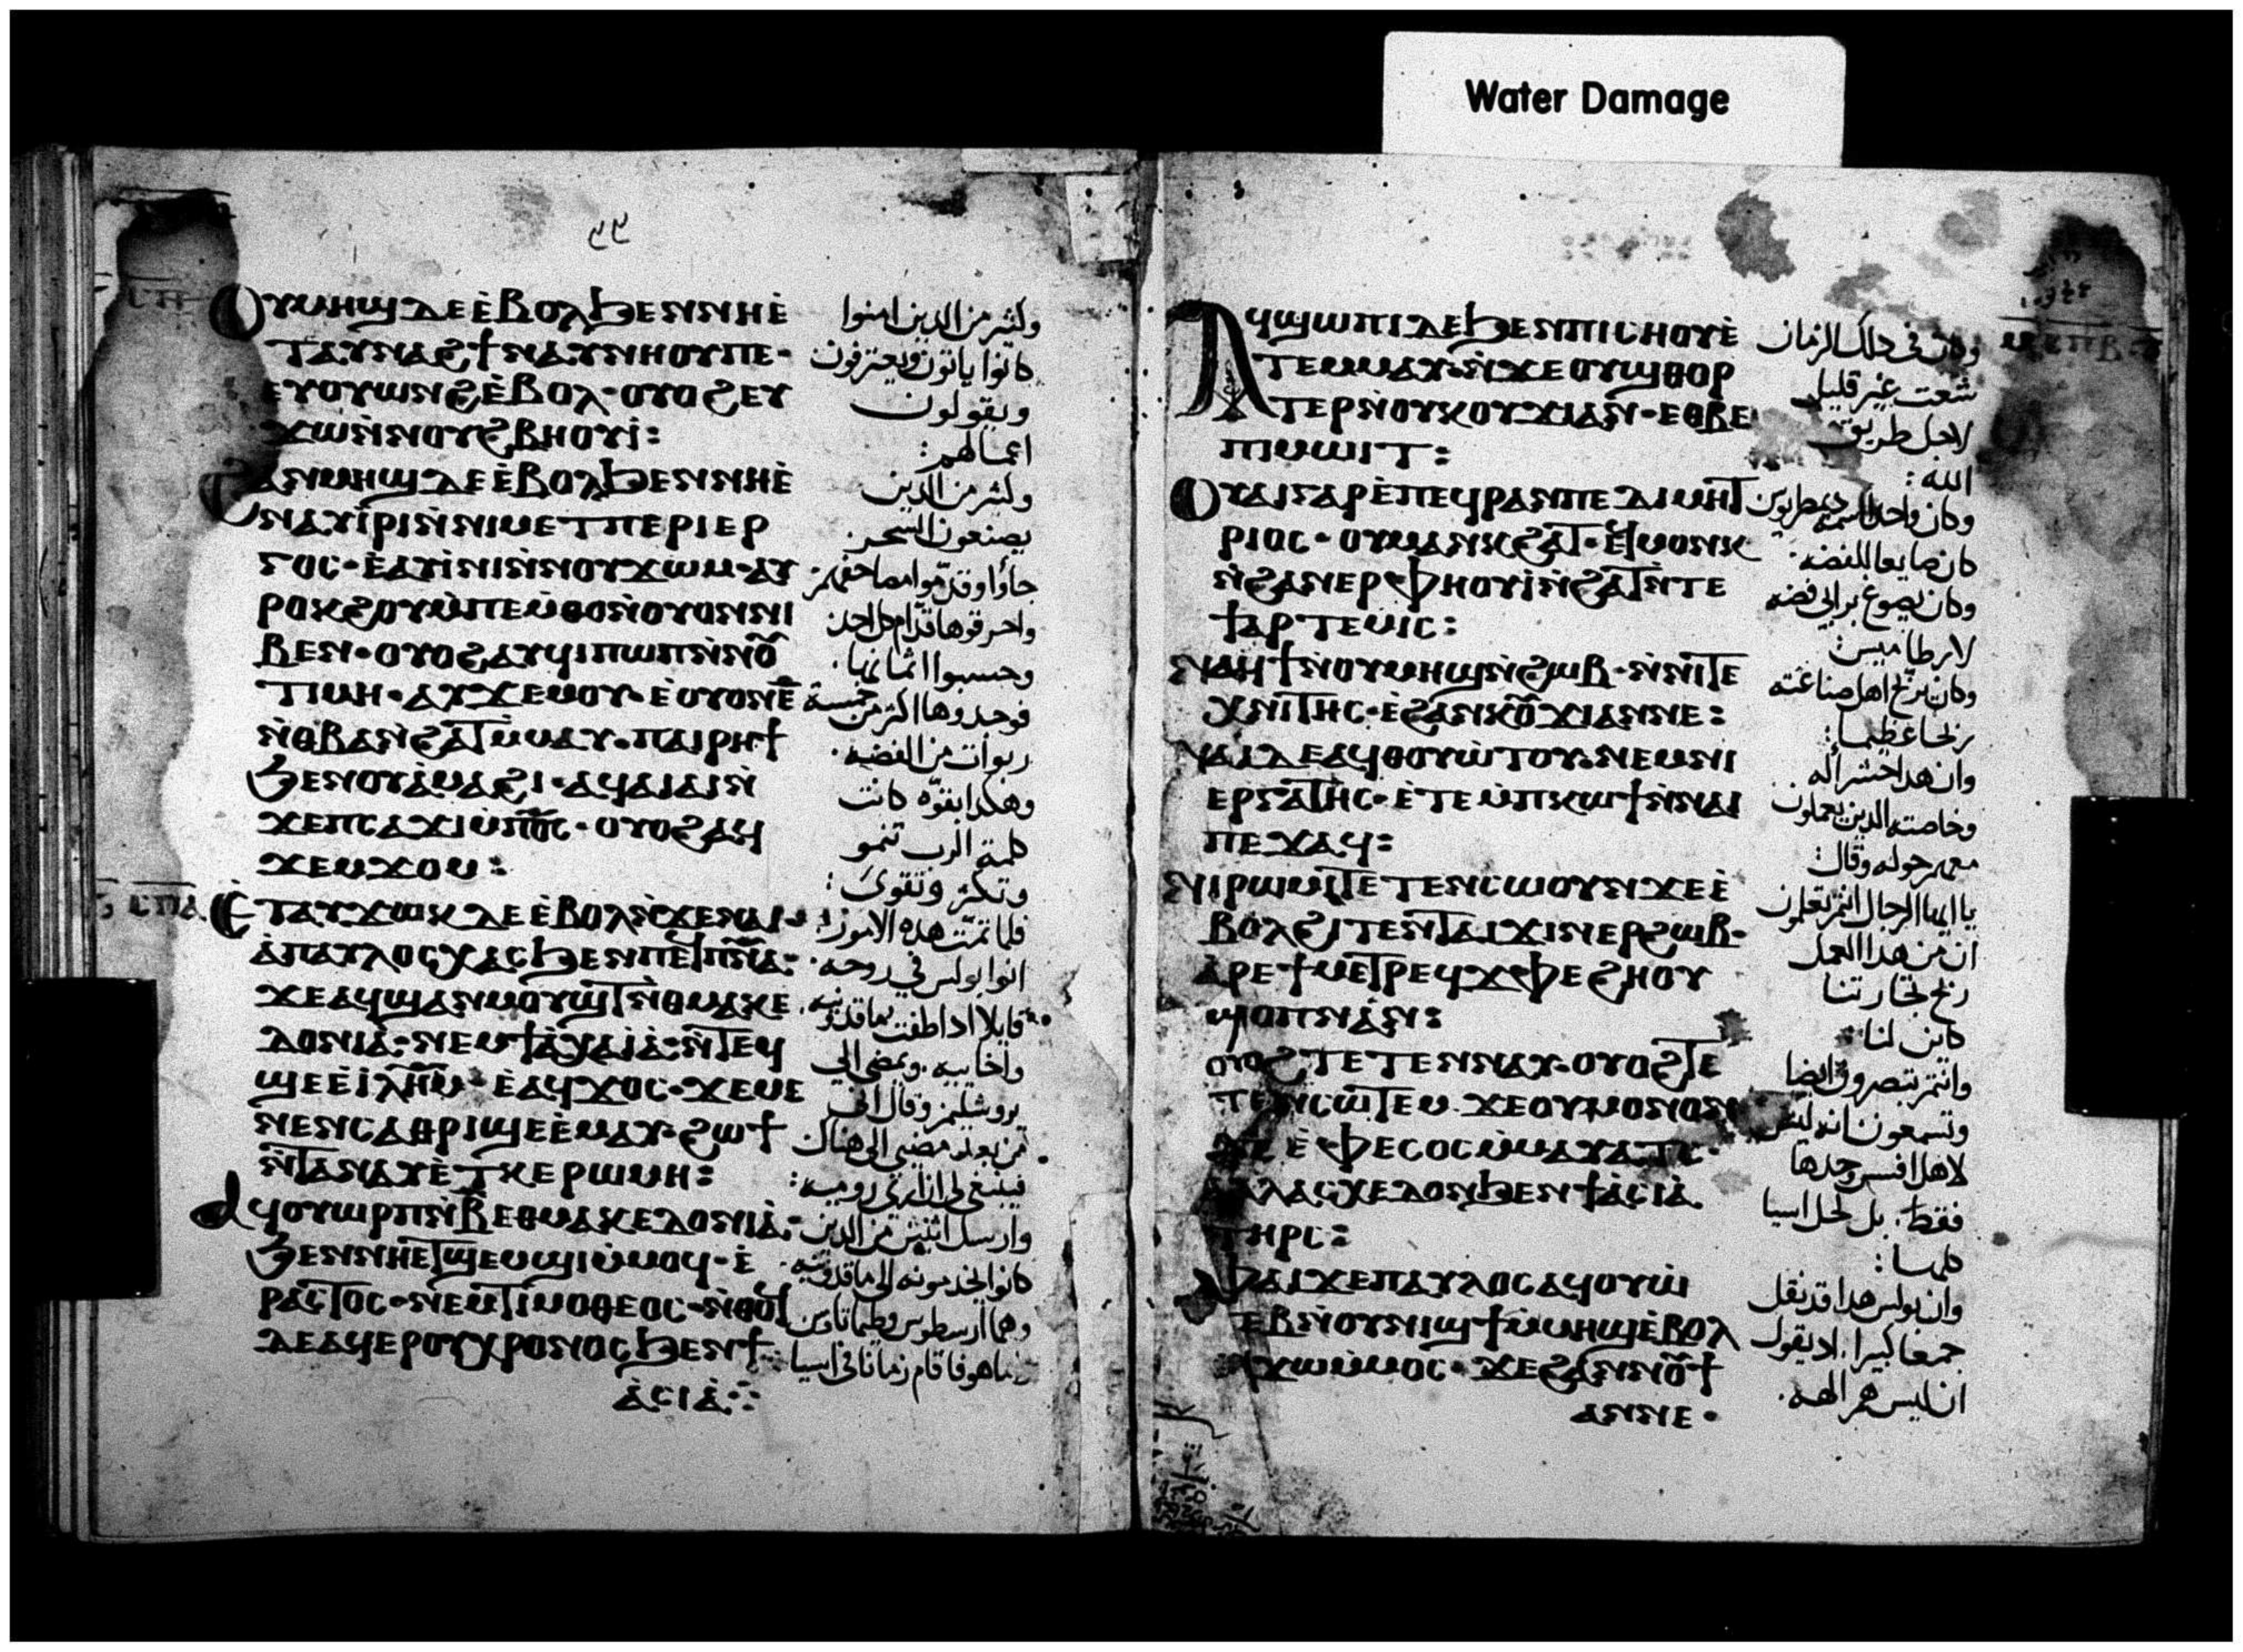 Water Damage
ⲟⲩⲙⲏϣ ⲇⲉ ⲉ̀ⲃⲟⲗ ϧⲉⲛ ⲛⲏⲉ̀
ⲧⲁⲩⲛⲁϩϯ ⲛⲁⲩⲛⲏⲟⲩ ⲡⲉ·
ⲉⲩⲟⲩⲱⲛϩ ⲉ̀ⲃⲟⲗ· ⲟⲩⲟϩ ⲉⲩ
ϫⲱ ⲛ̀ⲛⲟⲩϩⲃⲏⲟⲩⲓ̀:
ϩⲁⲛⲙⲏϣ ⲇⲉ ⲉ̀ⲃⲟⲗ ϧⲉⲛ ⲛⲏⲉ̀
ⲛⲁⲩⲓ̀ⲣⲓ ⲛ̀ⲛⲓⲙⲉⲧⲡⲉⲣⲓⲉⲣ
ⲅⲟⲥ· ⲉ̀ⲁⲩⲓ̀ⲛⲓ ⲛ̀ⲛⲟⲩϫⲱⲙ· ⲁⲩ
ⲣⲟⲕϩⲟⲩ ⲙ̀ⲡⲉⲙ̀ⲑⲟ ⲛ̀ⲟⲩⲟⲛ ⲛⲓ
ⲃⲉⲛ· ⲟⲩⲟϩ ⲁⲩϥⲓⲡⲱⲡ ⲛ̀ⲛⲟ̅
ⲧⲓⲙⲏ· ⲁⲩϫⲉⲙⲟⲩ· ⲉ̀ⲟⲩⲟⲛ ⲉ̅
ⲛ̀ⲑⲃⲁ ⲛ̀ϩⲁⲧ ⲙ̀ⲙⲁⲩ· ⲡⲁⲓⲣⲏϯ
ϧⲉⲛ ⲟⲩⲁ̀ⲙⲁϩⲓ· ⲁϥⲁⲓⲁⲓ ⲛ̀
ϫⲉ ⲡⲥⲁϫⲓ ⲙ̀ⲡϭ̅ⲥ̅· ⲟⲩⲟϩ ⲁϥ
ϫⲉⲙϫⲟⲙ:
ⲉ̀ⲧⲁⲩϫⲱⲕ ⲇⲉ ⲉ̀ⲃⲟⲗ ⲛ̀ϫⲉ ⲛⲁⲓ·
ⲁ̀ ⲡⲁⲩⲗⲟⲥ ⲭⲁⲥ ϧⲉⲛ ⲡⲉϥⲡ̅ⲛ̅ⲁ̅:
ϫⲉ ⲁϥϣⲁⲛⲙⲟⲩϣⲧ ⲛ̀ⲑⲙⲁⲕⲉ
ⲇⲟⲛⲓⲁ̀· ⲛⲉⲙ ϯⲁ̀ⲭⲁⲓⲁ̀· ⲛ̀ⲧⲉϥ
ϣⲉ ⲉ̀ⲓ̀ⲗ̅ⲏ̅ⲙ̅· ⲉ̀ⲁϥϫⲟⲥ· ϫⲉ ⲙⲉ
ⲛⲉⲛⲥⲁ ⲑⲣⲓϣⲉ ⲉ̀ⲙⲁⲩ· ϩⲱϯ
ⲛ̀ⲧⲁⲛⲁⲩ ⲉ̀ⲧⲕⲉⲣⲱⲙⲏ:
ⲁϥⲟⲩⲱⲣⲡ ⲛ̀ⲃ̅ ⲉⲑⲙⲁⲕⲉⲇⲟⲛⲓⲁ̀:
ϧⲉⲛ ⲛⲏⲉⲧϣⲉⲙϣⲓ ⲙ̀ⲙⲟϥ· ⲉ̀
ⲣⲁⲥⲧⲟⲥ· ⲛⲉⲙ ⲧⲓⲙⲟⲑⲉⲟⲥ· ⲛ̀ⲑⲟϥ
ⲇⲉ ⲁϥⲉⲣ ⲟⲩⲭⲣⲟⲛⲟⲥ ϧⲉⲛ ϯ
ⲁ̀ⲥⲓⲁ̀
وكثير من الدين امنوا
كانوا ياتون ويعترفون
ويقولون
اعمالهم:
وكثير من الدين
يصنعون السحر
جاؤا وقدّموا مصاحفهم
واحرقوها قدّام كل احد
وحسبوا اثمانها
فوجدوها اكثر من خمسة
ربوات من الفضه
وهكدا بقوّه كانت
كلمة الرب تنمو
وتكثر وتقوى:
فلما تمّت هده الامور
انوا بولس في روحه
قايلا ادا طفت بماقدونيه
واخاييه ويمضي الى
يروشليم وقال اني
من بعد مضيي الى هناك
فينبغي لي ان ارى روميه:
وارسل اثنين من الدين
كانوا يخدمونه الى ماقدونيه
وهما ارسطوس وطيماتاوس
هو فاقام زمانا في اسيا
ⲁϥϣⲱⲡⲓ ⲇⲉ ϧⲉⲛ ⲡⲓⲥⲏⲟⲩ ⲉ̀
ⲧⲉⲙⲙⲁⲩ· ⲛ̀ϫⲉ ⲟⲩϣⲑⲟⲣ
ⲧⲉⲣ ⲛ̀ⲟⲩⲕⲟⲩϫⲓ ⲁⲛ· ⲉⲑⲃⲉ
ⲡⲓⲙⲱⲓⲧ:
ⲟⲩⲁⲓ ⲅⲁⲣ ⲉ̀ⲡⲉϥⲣⲁⲛ ⲡⲉ ⲇⲓⲙⲏⲧ
ⲣⲓⲟⲥ· ⲟⲩⲙⲁⲛⲕϩⲁⲧ· ⲉϥⲙⲟⲛⲕ
ⲛ̀ϩⲁⲛⲉⲣⲫⲏⲟⲩⲓ̀ ⲛ̀ϩⲁⲧ ⲛ̀ⲧⲉ
ϯⲁⲣⲧⲉⲙⲓⲥ:
ⲛⲁϥϯ ⲛ̀ⲟⲩⲙⲏϣ ⲛ̀ϩⲱⲃ· ⲛ̀ⲛⲓⲧⲉ
ⲭⲛⲓⲧⲏⲥ· ⲉ̀ϩⲁⲛⲕⲟ̅ϫⲓ ⲁⲛ ⲛⲉ:
ⲛⲁⲓ ⲇⲉ ⲁϥⲑⲟⲩⲱ̀ⲧⲟⲩ· ⲛⲉⲙ ⲛⲓ
ⲉⲣⲅⲁⲧⲏⲥ· ⲉ̀ⲧⲉ ⲙ̀ⲡⲕⲱϯ ⲛ̀ⲛⲁⲓ
ⲡⲉϫⲁϥ:
ⲛⲓⲣⲱⲙⲓ ⲧⲉⲧⲉⲛⲥⲱⲟⲩⲛ ϫⲉ ⲉ̀
ⲃⲟⲗ ϩⲓⲧⲉⲛ ⲧⲁⲓϫⲓⲛⲉⲣϩⲱⲃ·
ⲁ̀ⲣⲉ ϯⲙⲉⲧⲣⲉϥϫⲫⲉ ϩⲏⲟⲩ
ϣⲟⲡ ⲛⲁⲛ:
ⲟⲩⲟϩ ⲧⲉⲧⲉⲛⲛⲁⲩ· ⲟⲩⲟϩ ⲧⲉ
ⲧⲉⲛⲥⲱⲧⲉⲙ· ϫⲉ ⲟⲩ ⲙⲟⲛⲟⲛ
ⲉ̀ⲫⲉⲥⲟⲥ ⲙ̀ⲙⲁⲩⲁⲧⲥ·
ⲁⲗⲗⲁ ⲥⲭⲉⲇⲟⲛ ϧⲉⲛ ϯⲁ̀ⲥⲓⲁ̀
ⲧⲏⲣⲥ:
ⲫⲁⲓ ϫⲉ ⲡⲁⲩⲗⲟⲥ ⲁϥⲟⲩⲱ̀
ⲧⲉⲃ ⲛ̀ⲟⲩⲛⲓϣϯ ⲙ̀ⲙⲏϣ ⲉ̀ⲃⲟⲗ
ⲉϥϫⲱ ⲙ̀ⲙⲟⲥ· ϫⲉ ϩⲁⲛⲛⲟ̅ϯ
ⲁⲛ ⲛⲉ·
وكان في دلك الزمان
شعت غير قليل
لاجل طريق
الله:
وكان واحد اسمه ديمطريوس
كان صايغا للفضه
وكان يصوغ برابي فضه
لارطاميس:
وكان يربح اهل صناعته
ربحا عظيما:
وان هدا حشر اله
وخاصته الدين يعملون
معهم حوله وقال:
يا ايها الرجال انتم تعلمون
ان من هدا العمل
ربح تجارتنا
كاين لنا
وانتم تبصرون ايضا
وتسمعون انه ليس
لاهل افسس وحدها
فقط، بل لكل اسيا
كلها:
وان بولس هدا قد نقل
جمعا كبيرا، اد يقول
ان ليس هم الهه